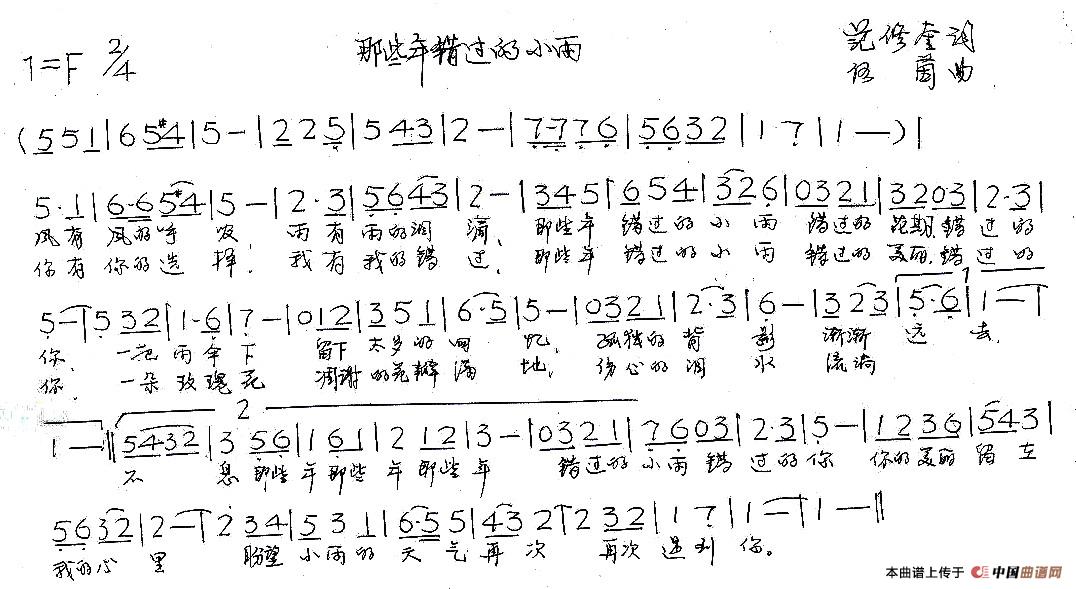 那些年错过的小雨
1=F 2/4
范修奎词
曲
(5 5 1|6 5 #4|5 -|2 2 5|5 4·3|2 -|7·7 7 6|5 6 3 2|1 7|1 -)|
5·1|6·6 5 #4|5 -|2·3|5 6 4 3|2 -|3 4 5|6 5 4|3 2 6|0 3 2 1|3 2 0·3|2·3|
风有 风的呼吸, 雨有雨的 滴, 那些年 错过的小雨 错过的花期,错过的
你有你的选择, 我有我的错过, 那些年 错过的小雨 错过的美丽,错过的
5 -|5 3 2|1·6|7 -|0 1 2|3 5 1|6·5|5 -|0 3 2 1|2·3|6 -|3 2 3|5·6|1 -|
你, 一把雨伞下 留下太多的回忆, 孤独的背影 渐渐远去,
你, 一朵玫瑰花 凋谢的花瓣满地, 伤心的泪水 流淌
1 -‖5 4·3 2|3 5 6|1 6 1|2 1 2|3 -|0 3 2 1|7 6 0 3|2·3|5 -|1 2 3 6|5 4 3|
不 息 那些年那些年那些年 错过的小雨错过的你 你的美丽留在
5 6 3 2|2 -|2 3 4|5 3 1|6·5 5|4 3 2|2 3 2|1 7|1 -|1 -‖
我的心里 盼望小雨的天气再次 再次遇到你。
本曲谱上传于 中国曲谱网